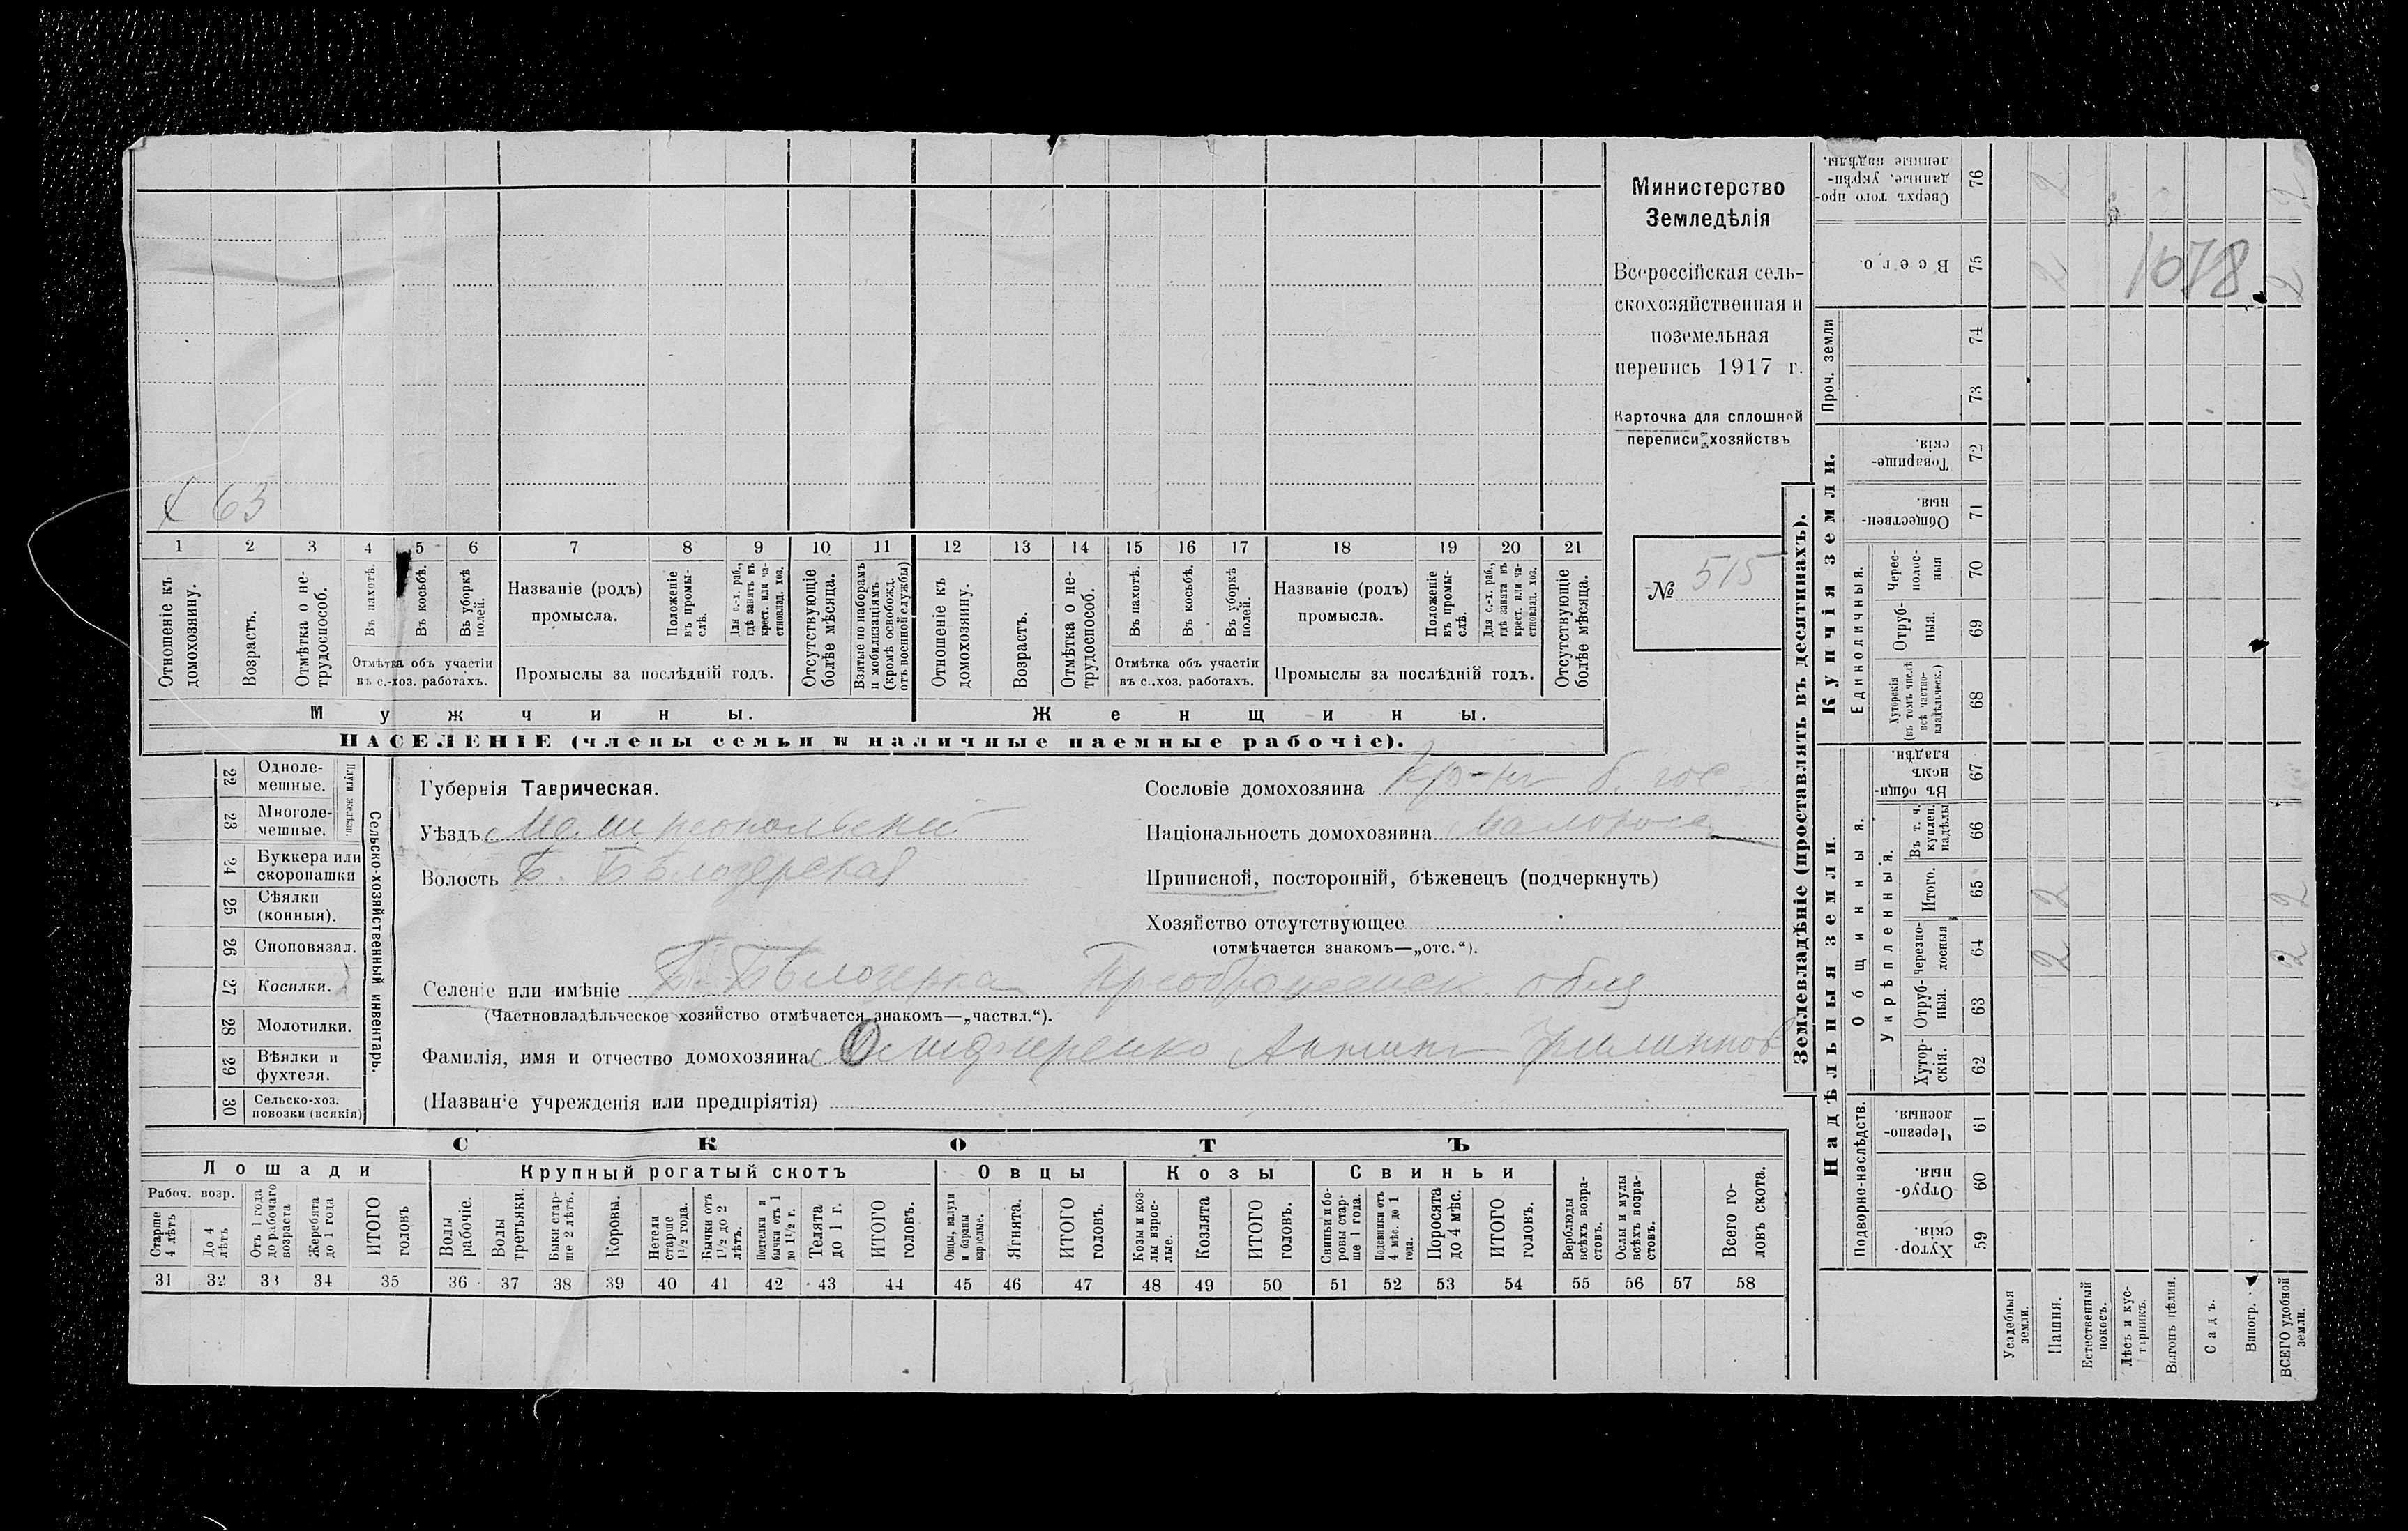 Министерство
Земледѣлія
Всероссійская сель-
скохозяйственная и
поземельная
перепись 1917 г.
Карточка для сплошной
переписи хозяйствъ
№ 515
х 63
1 2 3 4 5 6 7 8 9 10 11 12 13 14 15 16 17 18 19 20 21
Отношеніе къ домохозяину.
Возрастъ.
Отмѣтка о не-трудоспособ.
Въ пахотѣ.
Въ косьбѣ.
Въ уборкѣ полей.
Отмѣтка объ участіи
въ с.-хоз. работахъ.
Названіе (родъ)
промысла.
Положеніе въ промы-слѣ.
Для с.-х. раб., гдѣ занятъ въ крест. или ча-стновлад. хоз.
Промыслы за послѣдній годъ.
Отсутствующіе болѣе мѣсяца.
Взятые по наборамъ и мобилизаціямъ (кромѣ освобожд. отъ военной службы)
Отношеніе къ домохозяину.
Возрастъ.
Отмѣтка о не-трудоспособ.
Въ пахотѣ.
Въ косьбѣ.
Въ уборкѣ полей.
Отмѣтка объ участіи
въ с..хоз. работахъ.
Названіе (родъ)
промысла.
Положеніе въ промы-слѣ.
Для с.-х. раб., гдѣ занята въ крест. или ча-стновлад. хоз.
Промыслы за послѣдній годъ.
Отсутствующіе болѣе мѣсяца.
Мужчины. Женщины.
НАСЕЛЕНІЕ (члены семьи и наличные наемные рабочіе).
22 Одноле-мешные.
23 Многоле-мешные.
Плуги желѣзн.
24 Буккера или скоропашки
25 Сѣялки (конныя).
26 Сноповязал.
27 Косилки.
28 Молотилки.
29 Вѣялки и фухтеля.
30 Сельско-хоз. повозки (всякія)
Сельско-хозяйственный инвентарь.
Губернія Таврическая.
Уѣздъ Мелитопольскій
Волость Б. Бѣлозерская
Сословіе домохозяина Кр-нъ б. гос
Національность домохозяина малороссъ
Приписной, посторонній, бѣженецъ (подчеркнуть)
Хозяйство отсутствующее
(отмѣчается знакомъ—„отс.“).
Селеніе или имѣніе Б. Бѣлозерка Преображенск. общ
(Частновладѣльческое хозяйство отмѣчается знакомъ—„частвл.“).
Фамилія, имя и отчество домохозяина
(Названіе учрежденія или предпріятія)
СКОТЪ
Лошади Крупный рогатый скотъ Овцы Козы Свиньи
Рабоч. возр.
Старше 4 лѣтъ
До 4 лѣтъ
Отъ 1 года до рабочаго возраста
Жеребята до 1 года
ИТОГО головъ
Волы рабочіе.
Волы третьяки.
Быки стар-ше 2 лѣтъ.
Коровы.
Нетели старше 1½ года.
Бычки отъ 1½ до 2 лѣтъ.
Подтелки и бычки отъ 1 до 1½ г.
Телята до 1 г.
ИТОГО головъ.
Овцы, валухи и бараны взрослые.
Ягнята.
ИТОГО головъ.
Козы и коз-лы взрос-лые.
Козлята
ИТОГО головъ.
Свиньи и бо-ровы стар-ше 1 года.
Подсвинки отъ 4 мѣс. до 1 года.
Поросята до 4 мѣс.
ИТОГО головъ.
Верблюды всѣхъ возра-стовъ.
Ослы и мулы всѣхъ возра-стовъ.
Всего го-ловъ скота.
31 32 33 34 35 36 37 38 39 40 41 42 43 44 45 46 47 48 49 50 51 52 53 54 55 56 57 58
Землевладѣніе (проставлять въ десятинахъ).
Надѣльныя земли. Купчія земли. Проч. земли
Подворно-наслѣдств.
Общинныя.
Укрѣпленныя.
Единоличныя.
Хутор-скія. 59
Отруб-ныя. 60
Черезпо-лосныя. 61
Хутор-скія. 62
Отруб-ныя. 63
Черезпо-лосныя 64 2 2
Итого. 65 2 2
Въ т. ч. куплен. надѣлы 66
Въ общи-номъ владѣн. 67
Хуторскія (въ томъ числѣ всѣ частно-владѣльческ.) 68
Отруб-ныя. 69
Черес-полос-ныя 70
Обществен-ныя. 71
Товарище-скія. 72
73
74
Всего. 75 2 2
Сверхъ того про-данные, укрѣп-ленные надѣлы. 76 2 2
1078
Усадебныя земли.
Пашня.
Естественный покосъ.
Лѣсъ и кус-тарникъ.
Выгонъ цѣлин.
Садъ.
Виногр.
ВСЕГО удобной земли.